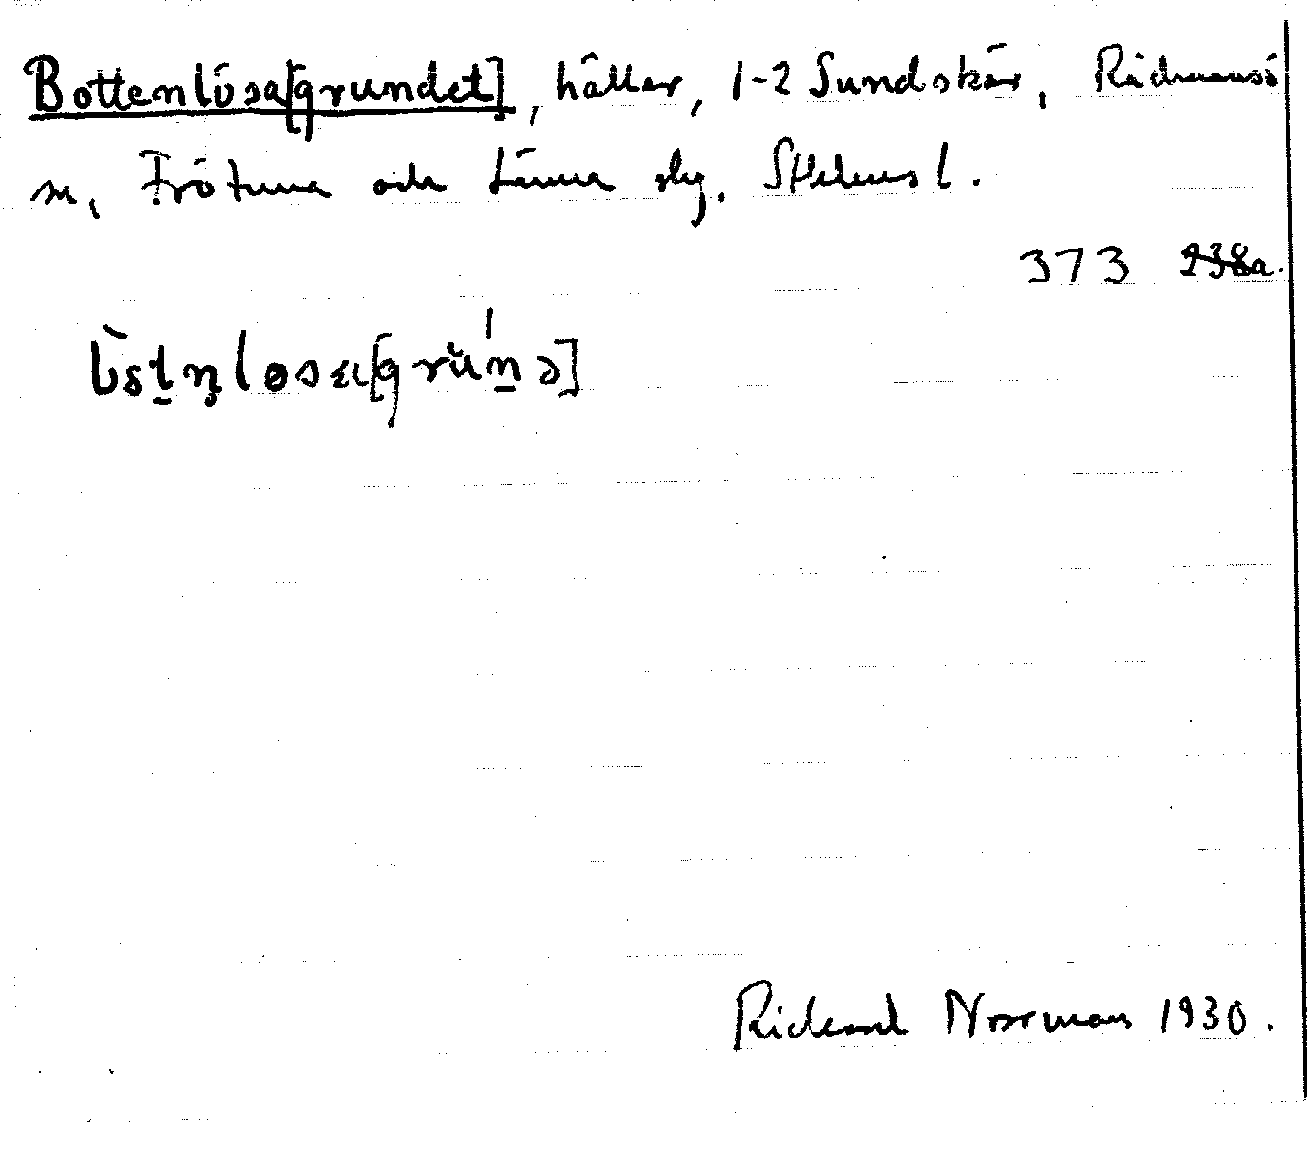 Bottenlösa[grundet], hällar, 1-2 Sundskär, Rådmansö
sn, Frötuna och Länna slg. Sthlms l.
373 238a.
Richard Norrman 1930.